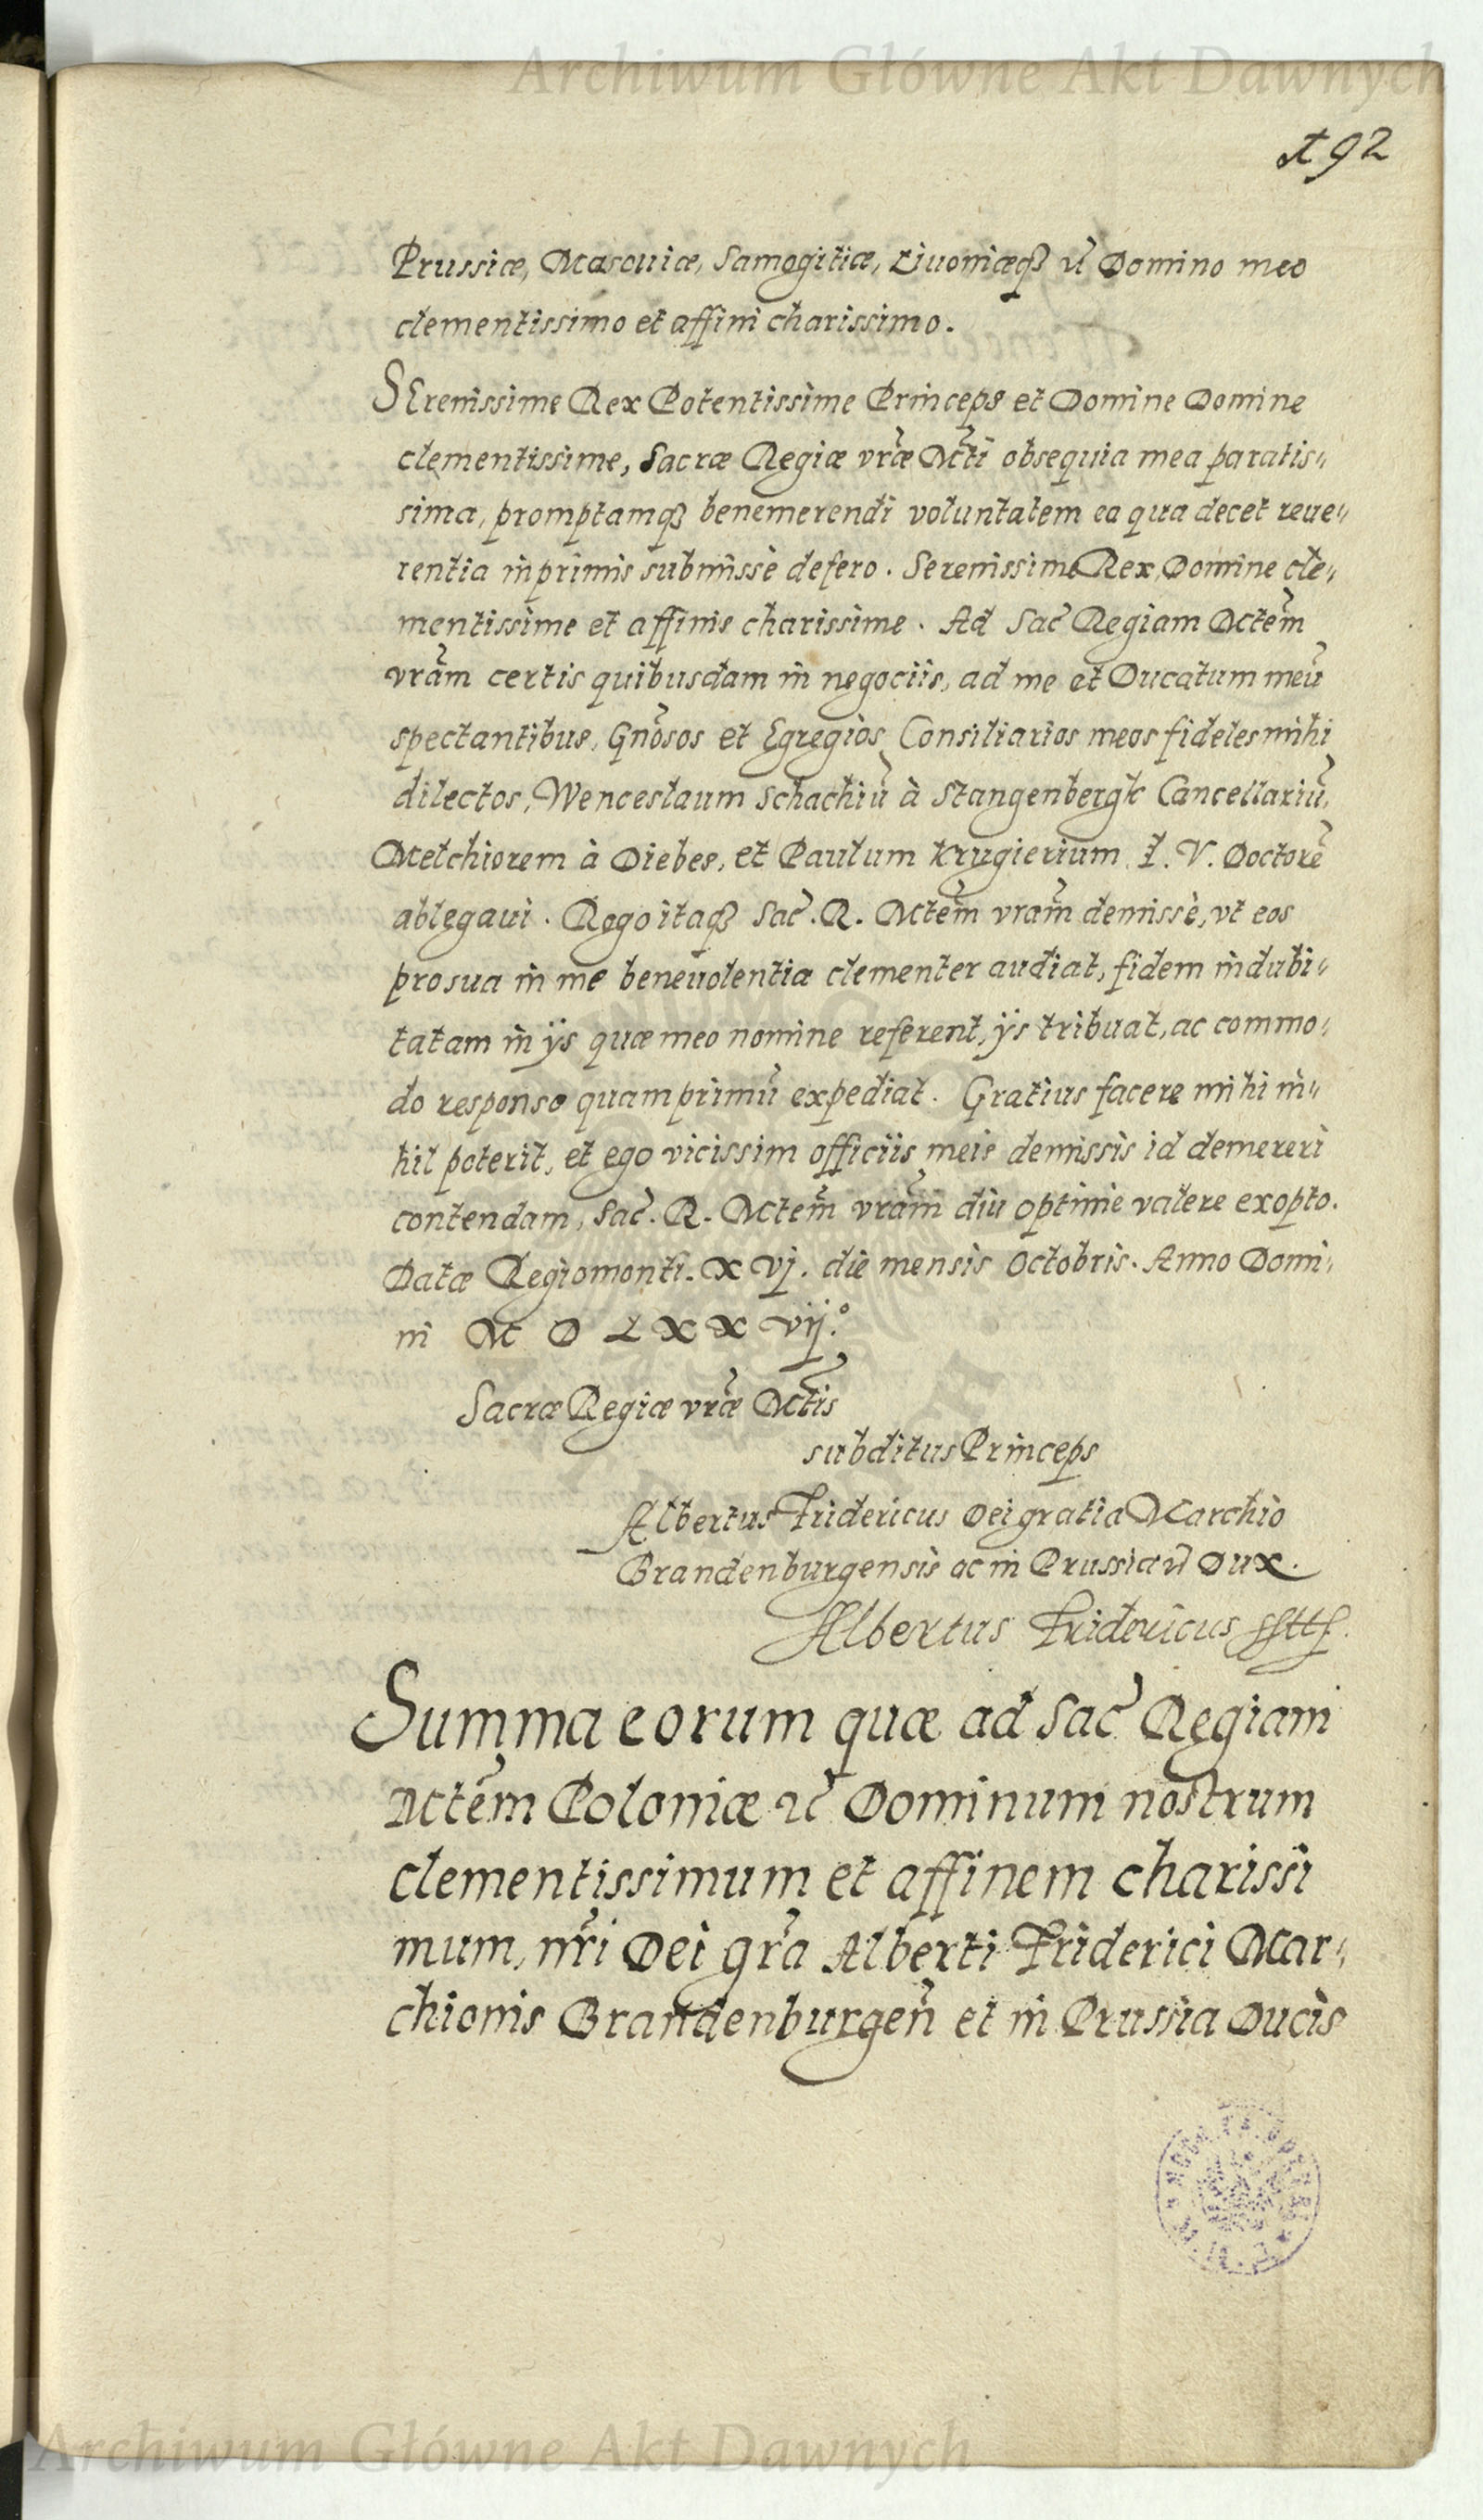 Archiwum Główne Akt Dawnych
192
Prussiæ, Masouiæ, Samogitiæ, Liuoniæq₃ ꝛc̃ Domino meo
clementissimo et affini charissimo.
SErenissime Rex Potentissime Princeps et Domine Domine
clementissime, Sacræ Regiæ vr̃æ Mt̃i obsequia mea paratis„
sima, promptamq₃ benemerendi voluntatem ea qua decet reue„
rentia inprimis submissè defero. Serenissime Rex Domine cle„
mentissime et affinis charissime. Ad Sac̃ Regiam Mtẽm
vrãm certis quibusdam in negociis, ad me et Ducatum meũ
spectantibus, Gnõsos et Egregios Consiliarios meos fideles mihi
dilectos, Wenceslaum Schachiũ à Stangenbergk Cancellariũ,
Melchiorem à Diebes, et Paulum Krugierium I. V. Doctorẽ
ablegaui. Rogo itaq₃ Sac̃. R. Mtẽm vrãm demissè, vt eos
pro sua in me beneuolentia clementer audiat, fidem indubi„
tatam in ÿs quæ meo nomine referent, ÿs tribuat, ac commo„
do responso quamprimũ expediat. Gratius facere mihi ni„
hil poterit, et ego vicissim officiis meis demissis id demereri
contendam, Sac̃. R. Mtẽm vrãm diu optime valere exopto.
Datæ Regiomonti. XVj. die mensis Octobris. Anno Domi„
ni M D L X X vij.°
Sacræ Regiæ vr̃æ Mt̃is
subditus Princeps
Albertus Fridericus Dei gratia Marchio
Brandenburgensis ac in Prussia ꝛc̃ Dux.
Albertus Fridericus
Summa eorum quæ ad Sac̃ Regiam
Mtẽm Poloniæ ꝛc̃ Dominum nostrum
clementissimum et affinem charissi
mum, nr̃i Dei gr̃a Alberti Friderici Mar„
chionis Brandenburgeñ et in Prussia Ducis
Archiwum Główne Akt Dawnych